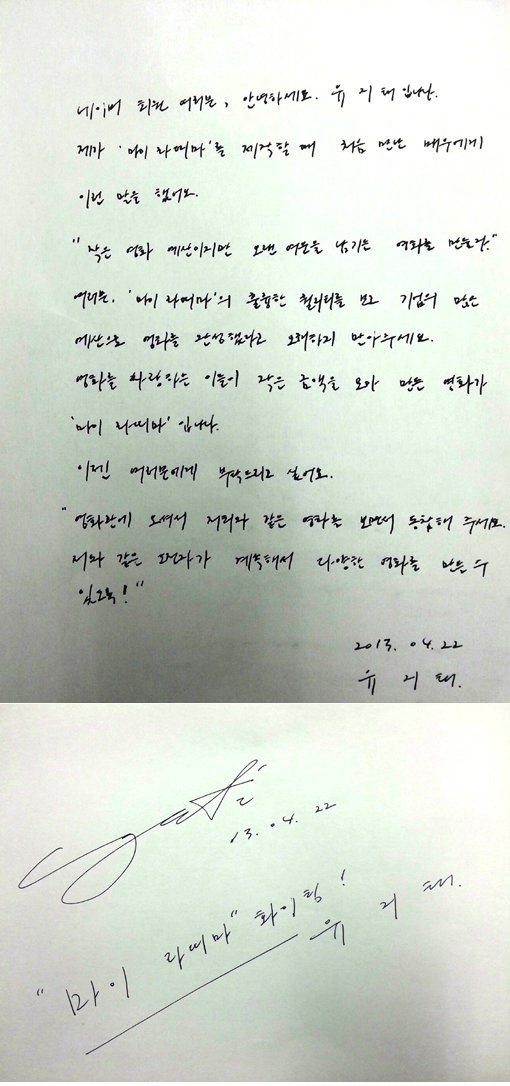 네이버 회원 여러분, 안녕하세요. 유지태입니다.
제가 '마이 라띠마'를 제작할 때 처음 만난 배우에게
이런 말을 했어요.
"작은 영화 예산이지만 오랜 여운을 남기는 영화를 만들자."
여러분, '마이 라띠마'의 출중한 퀄리티를 보고 기업의 많은
예산으로 영화를 완성했다고 오해하지 말아주세요.
영화를 사랑하는 이들이 작은 금액을 모아 만든 영화가
'마이 라띠마' 입니다.
이젠 여러분에게 부탁드리고 싶어요.
"영화관에 오셔서 저희와 같은 영화를 보면서 동참해 주세요.
저와 같은 감독가 계속해서 다양한 영화를 만들 수
있도록!"
2013. 04. 22
유 지 태.
13. 04. 22
"마이 라띠마" 화이팅!
유 지 태.